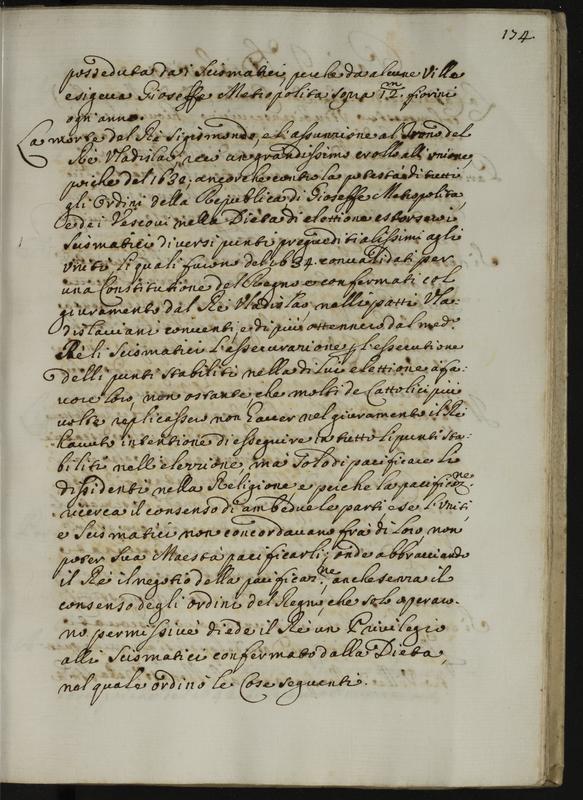 134.
posseduta da i Scismatici, perche da alcune Ville
esigeua Gioseffe Metropolita sopra 12.m fiorini
ogn'anno.
La morte del Rè Sigismondo, e l'assunzione al Trono del
Rè Vladislao, recò un grandissimo crollo all'vnione
poiche del 1632, ancorche contro la potestà di tutti
gli Ordini della Republica, di Gioseffe Metropolita,
e de i Vescoui nella Dieta di elettione estorsero i
Scismatici diversi punti pregiuditialissimi agli
vniti, li quali furon del 1634. conualidati per
una Constitutione del Regno e confermati col
giuramento dal Rè Vladislao nelle patti Vla-
dislauiani conuenti, e di più ottennero dal med.o
Rè li Scismatici l'assecurazione p l'essecutione
delli punti stabiliti nella di Lui elettione à fa-
uore loro, non ostante che molti de Cattolici più
uolte replicassero non hauer nel giuramento il Rè
hauuto intentione di esseguire in tutto li punti sta-
biliti nell'elezzione, mà solo di pacificare li
dissidenti nella Religione, e perche la pacificaz.ne
ricerca il consenso di ambedue le parti e se l'Vniti
e Scismatici non concordauano frà di loro non
poter Sua Maestà pacificarli; onde abbracciando
il Rè il negotio della pacificaz.ne, anche senza il
consenso degli ordini del Regno, che solo operaro-
no permissiuè diede il Rè un Priuilegio
alli Scismatici confermato dalla Dieta,
nel quale ordinò le Cose seguenti.